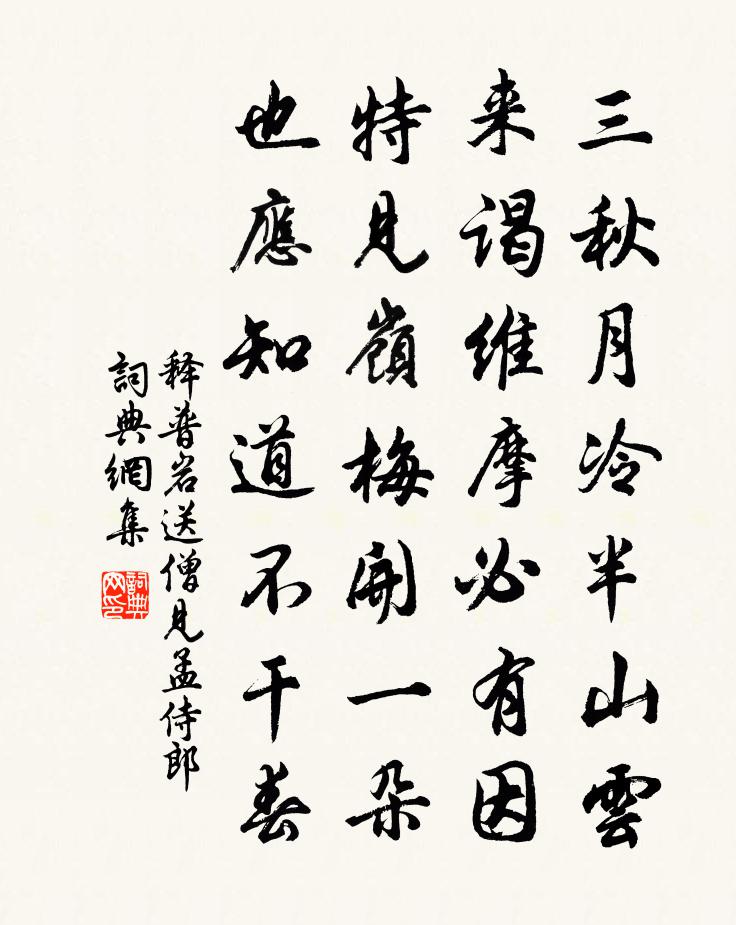 三秋月冷半山雲
来谒維摩必有因
特見嶺梅開一朵
也應知道不干春
释普岩送僧見孟侍郎
詞典網集
詞典网印